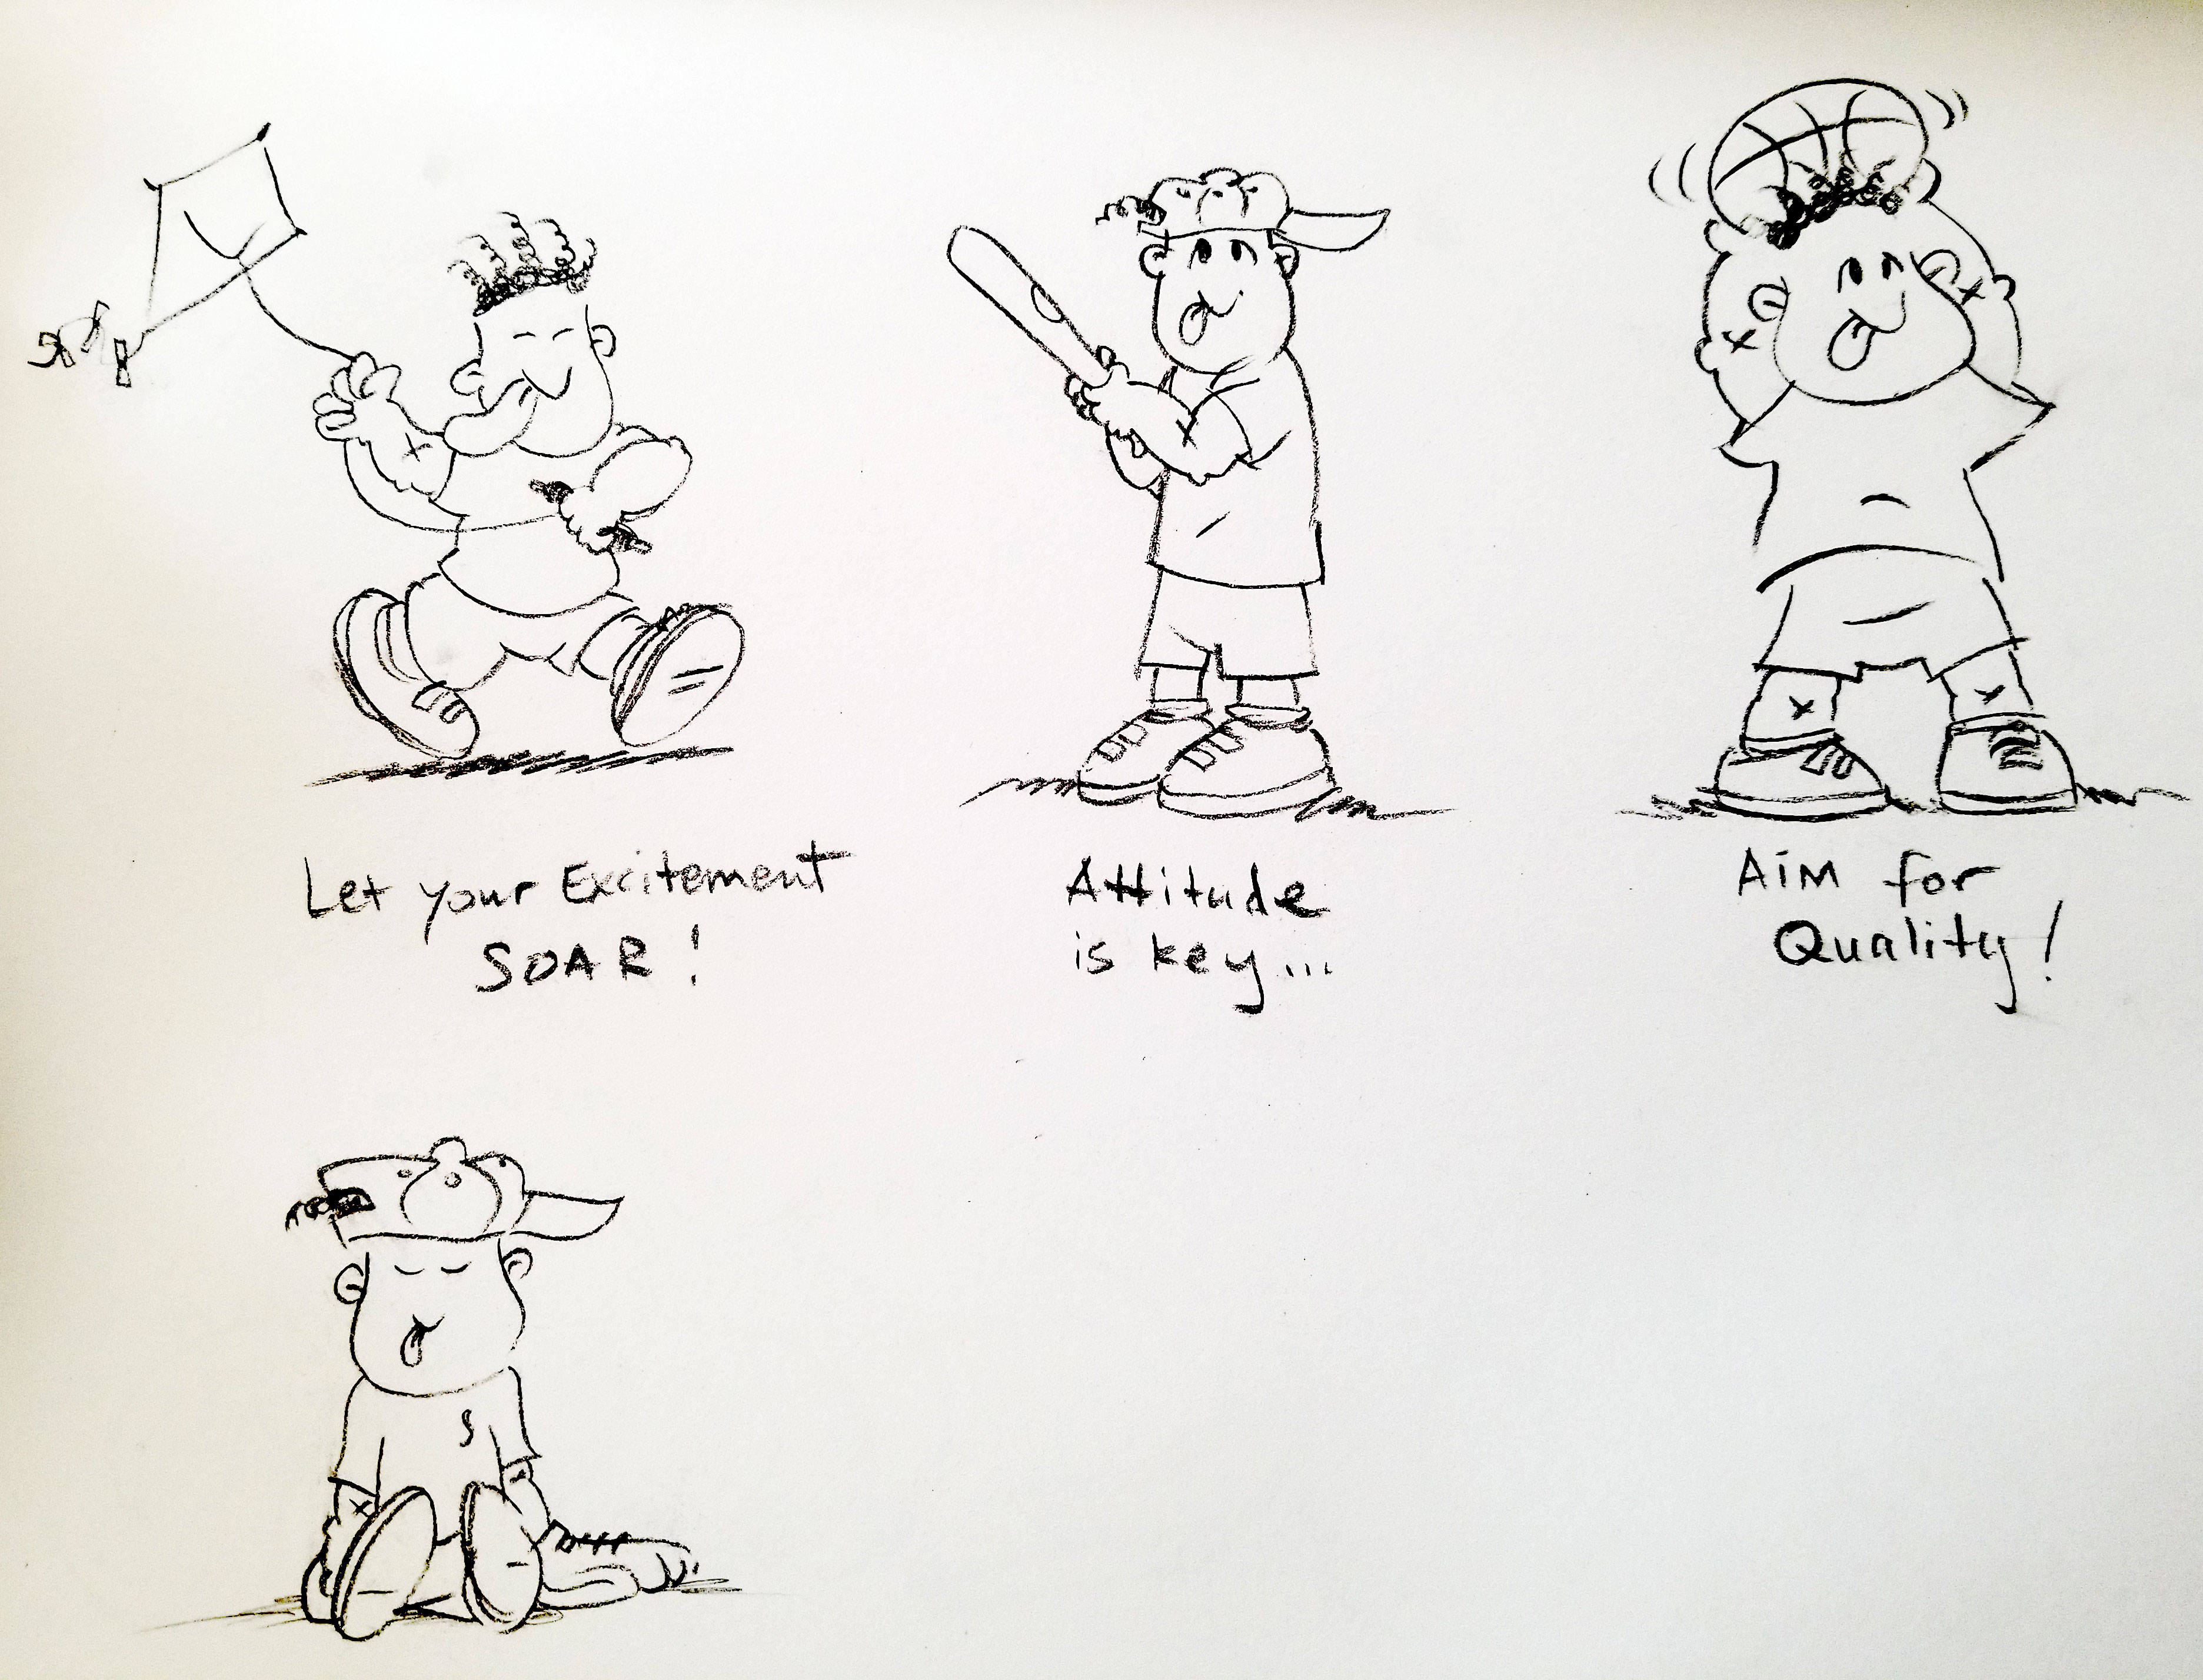 Let your Excitement
SOAR!
Attitude
is key...
Aim for
Quality!